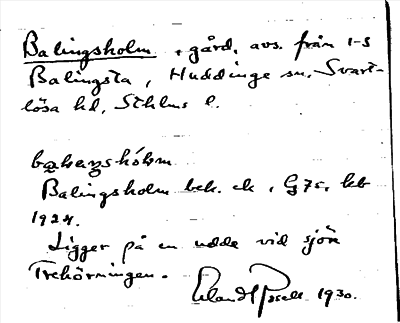 Balingsholm, gård, avs. från 1-3
Balingsta, Huddinge sn, Svart-
lösa hd, Sthlms l.
Balingsholm bek. ek.
1924.
Ligger på en udde vid sjön
Trehörningen.
Erland 1930.